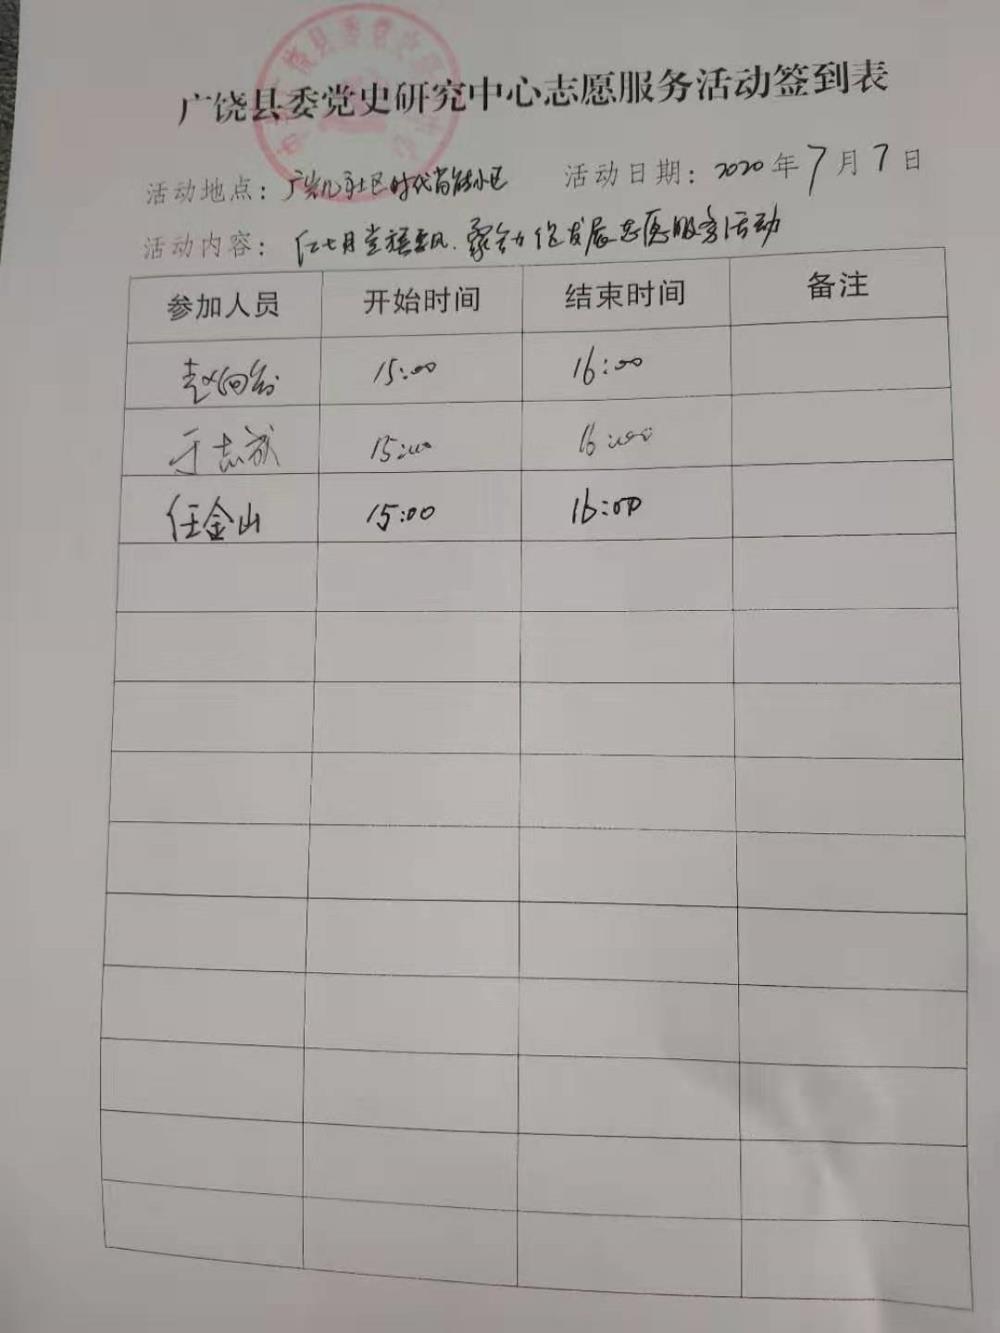 广饶县委党史研究中心志愿服务活动签到表
活动地点: 社区时代小区 活动日期: 2020年7月7日
活动内容: 红七月党旗飘 聚合力促发展志愿服务活动
参加人员 开始时间 结束时间 备注
15:00 16:00
于志斌 15:00 16:00
任金山 15:00 16:00